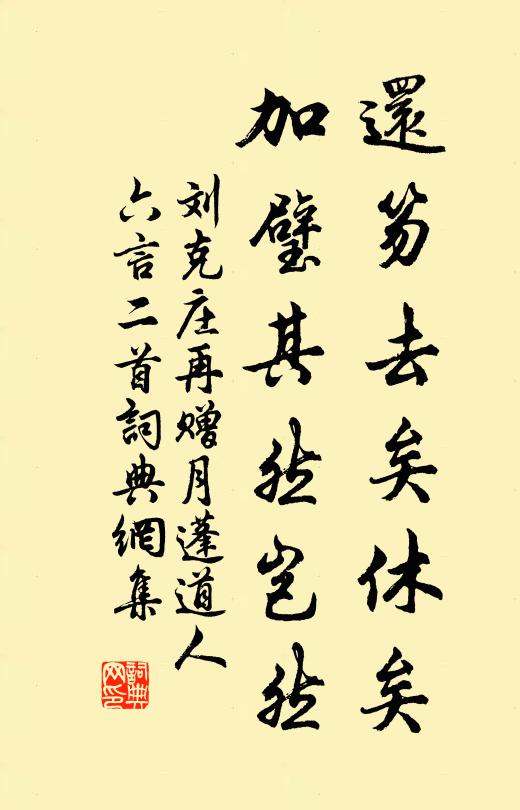 還笏去矣休矣
加璧其然豈然
刘克庄再赠月蓬道人
六言二首詞典網集
詞典網印